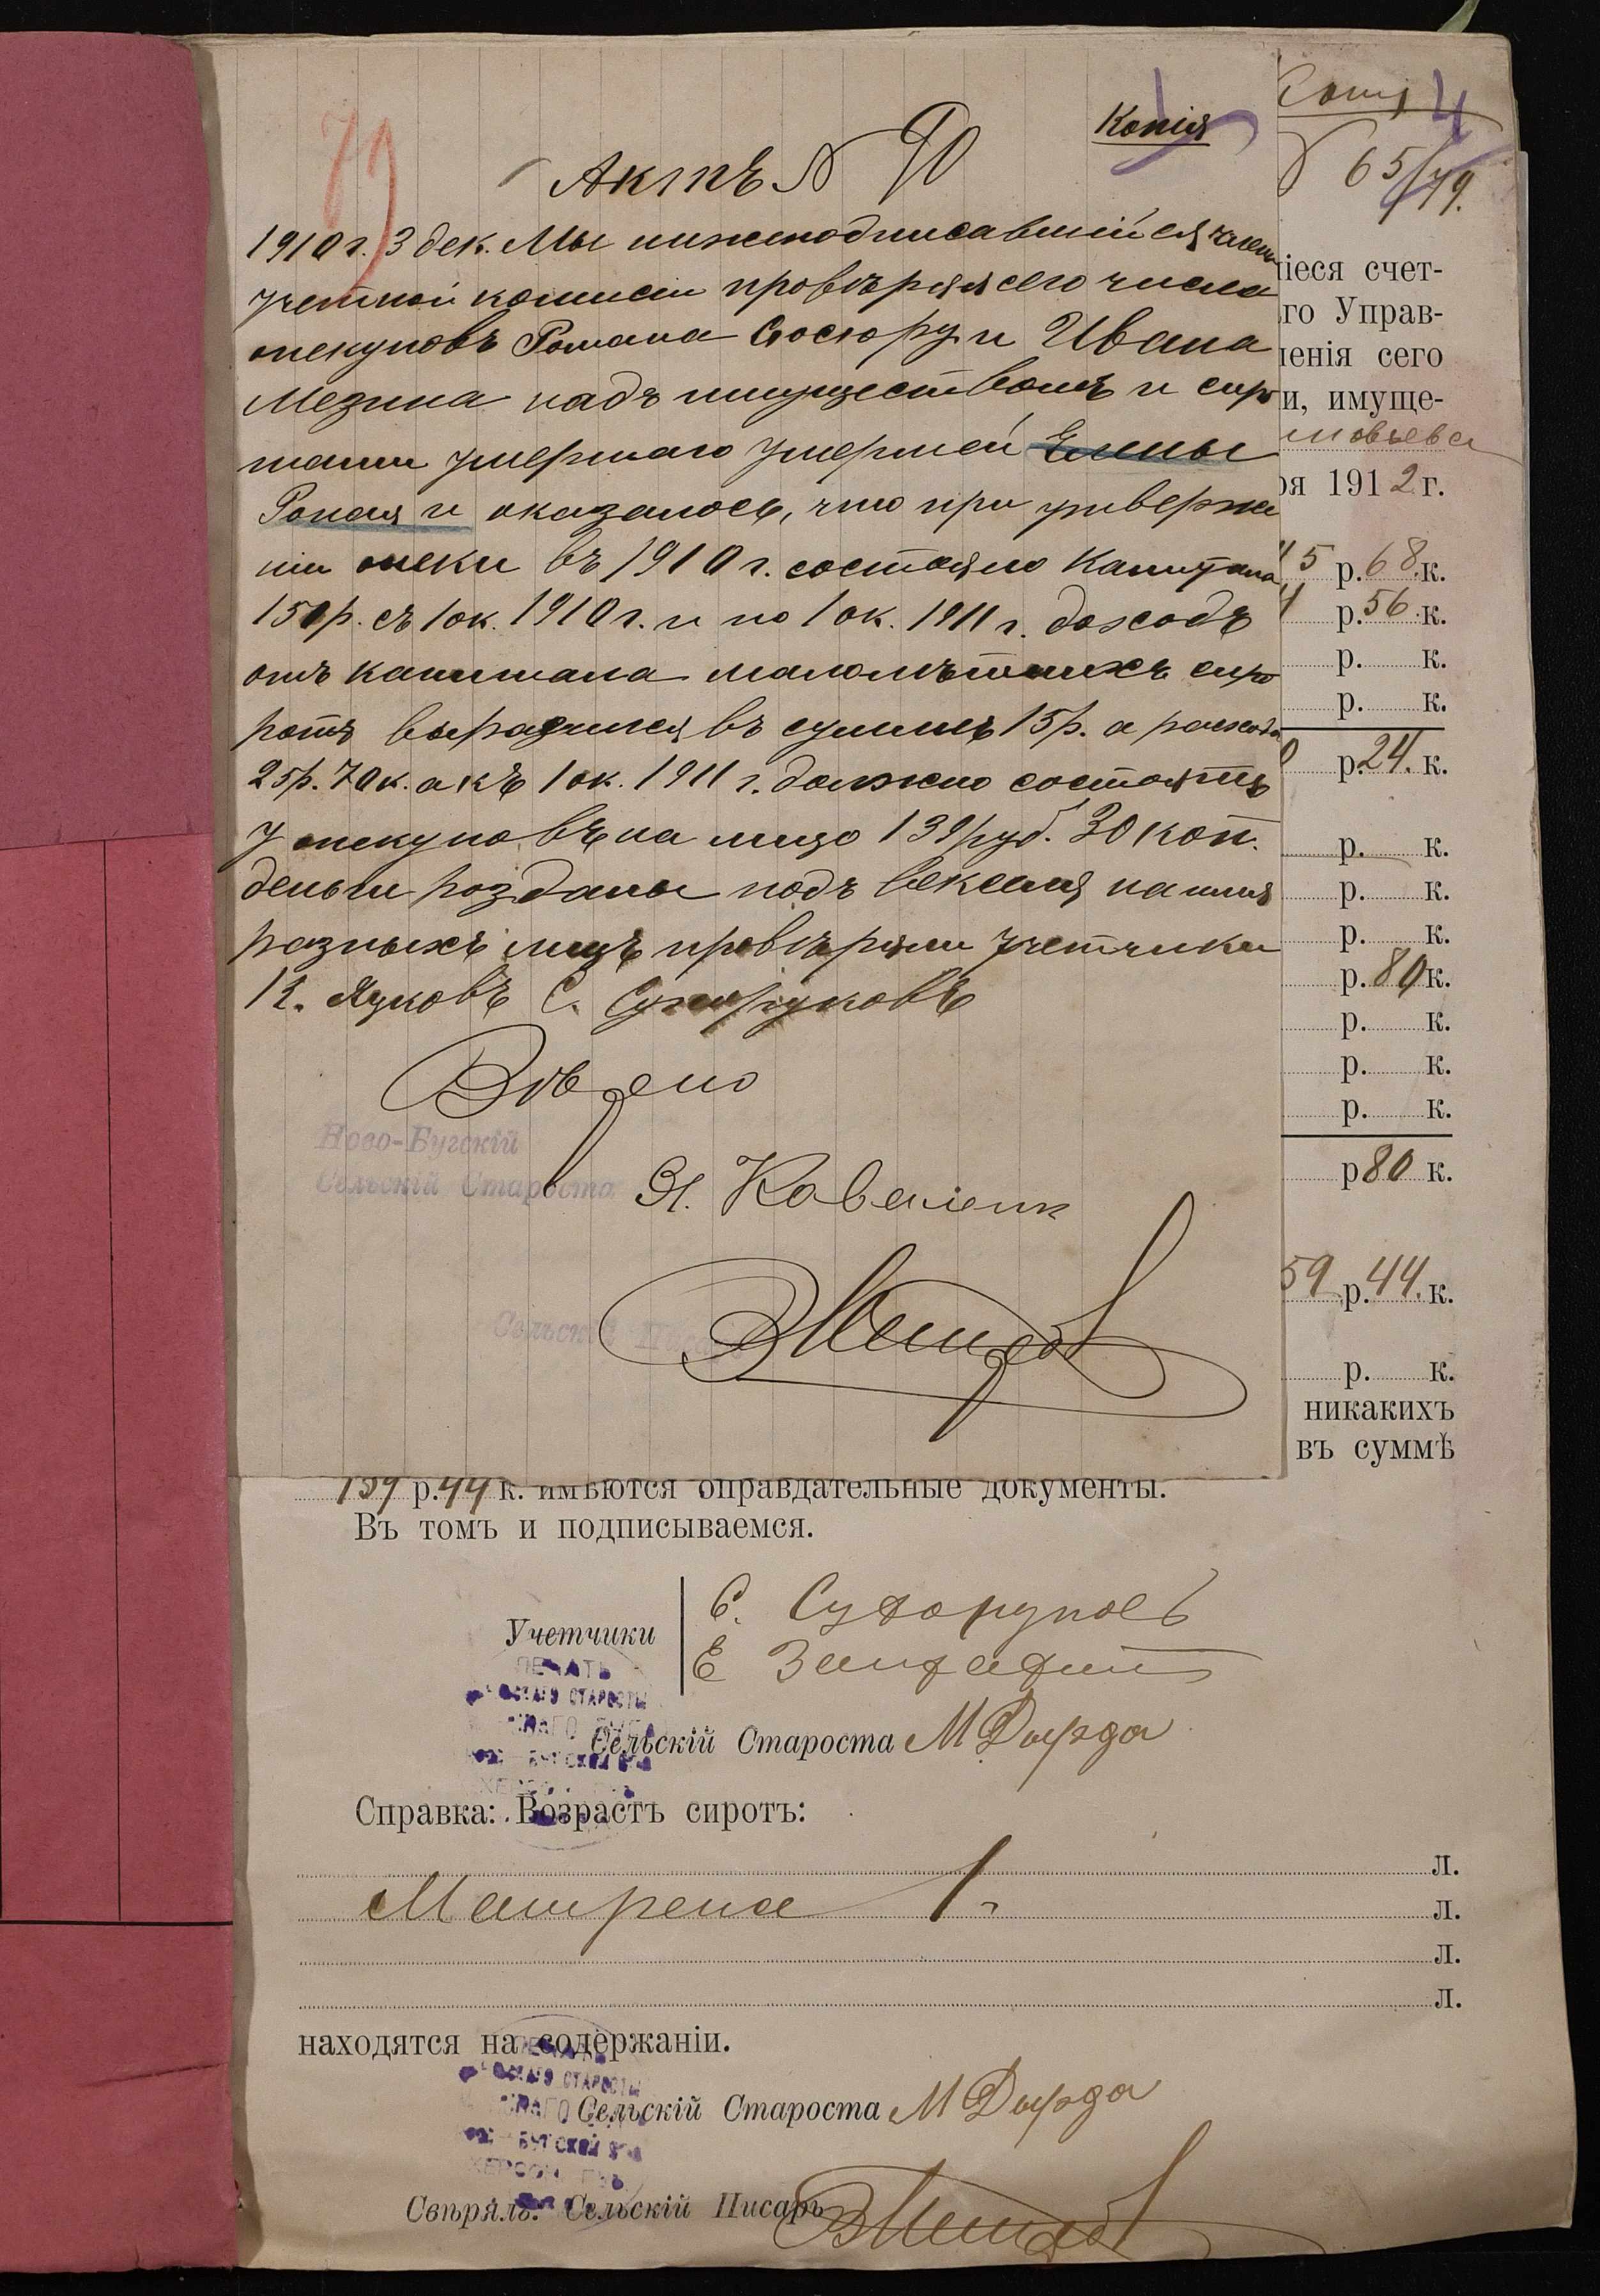 79
Копія
Актъ № 90
1910 г. 3 дек. Мы нижеподписавшійся члены
учетной комисіи провѣряя сего числа
опекуновъ Романа Сосюру и Ивана
Мезина надъ имуществомъ и сиро
тами умершаго умершей
оказалось, что при утвержде
ніи опеки въ 1910 г. состояло капитала
150 р. съ 1 ок. 1910 г. и по 1 ок. 1911 г. доходъ
отъ капитала малолѣтнихъ сиро
ротъ выразился въ суммѣ 15 р. а расхода
25 р. 70 к. а къ 1 ок. 1911 г. должно состоять
у опекуновъ на лицо 139 руб. 30 коп.
деньги розданы подъ векселя на имя
разныхъ лицъ провѣряли учетчики
Язковъ С. Сухоруковъ
Вѣрно
Ново-Бугскій
Сельскій Староста Коваленк
Сельскій Писарь
4
65/79.
іеся счет-
го Управ-
ленія сего
и, имуще-
ря 1912 г.
5 р. 68 к.
р. 56 к.
р. к.
р. к.
0 р. 24. к.
р. к.
р. к.
р. к.
р. 80 к.
р. к.
р. к.
р. к.
р 80 к.
59 р. 44. к.
р. к.
никакихъ
въ суммѣ
159 р. 44 к. имѣются оправдательные документы.
Въ томъ и подписываемся.
Учетчики
С. Сухоруковъ
Е
ПЕЧАТЬ
Сельскій Староста М Дырда
Справка: Возрастъ сиротъ:
л.
Матрена 1 л.
л.
л.
находятся на содержаніи.
Сельскій Староста М Дырда
Свѣрялъ: Сельскій Писарь